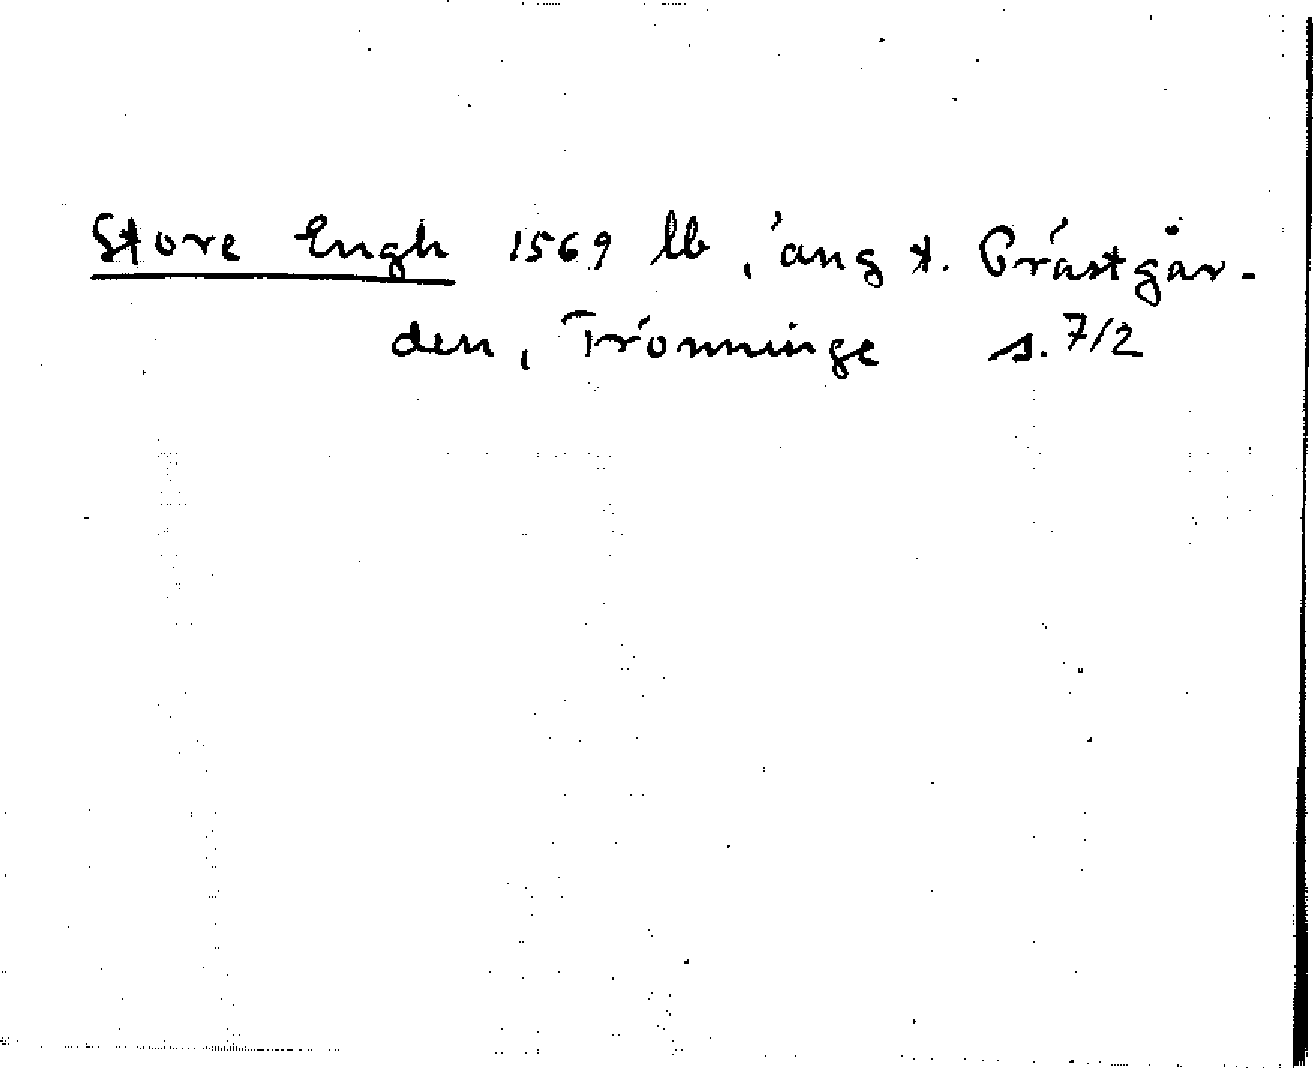 Store Engh 1569 lb, äng t. Prästgår-
den, Trönninge s. 7/2